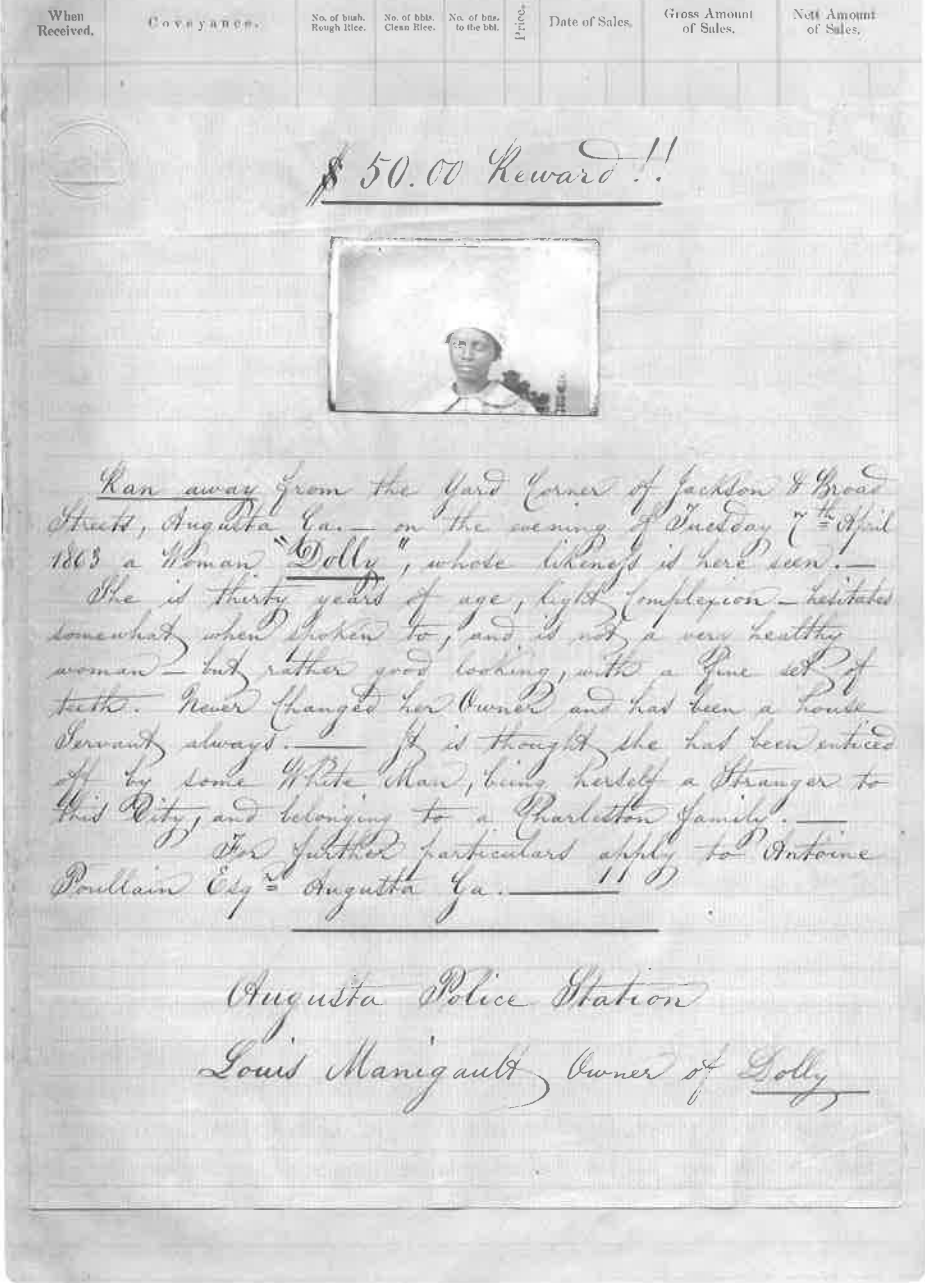 When Received.
Coveyance.
No. of bush. Rough Rice.
No. of bbls. Clean Rice.
No. of bus. to the bbl.
Price.
Date of Sales.
Gross Amount of Sales.
Nett Amount of Sales.
$ 50.00 Reward !!
Ran away from the Yard Corner of Jackson & Broad
Streets, Augusta Ga. — on the evening of Tuesday 7th April
1863 a Woman "Dolly", whose likeness is here seen. —
She is thirty years of age, light Complexion — hesitates
somewhat when spoken to, and is not a very healthy
woman — but rather good looking, with a fine set of
teeth. Never Changed her Owner and has been a house
Servant always. — It is thought she has been enticed
off by some White Man, being herself a Stranger to
this City, and belonging to a Charleston family. —
For further particulars apply to Antoine
Poullain Esqr Augusta Ga. —
Augusta Police Station
Louis Manigault Owner of Dolly